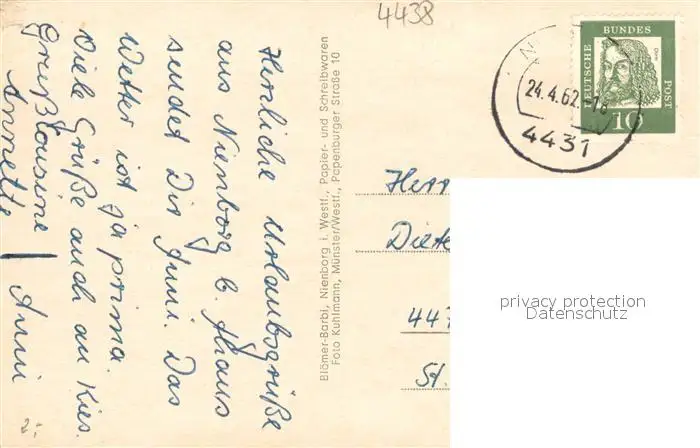 4438
Herzliche Urlaubsgrüße
aus Nienborg b. Ahaus
sendet Dir Anni. Das
Wetter ist ja prima.
Viele Grüße auch an Kies.
Anni
Annette
2,-
Blömer-Barbi, Nienborg i. Westf., Papier- und Schreibwaren
Foto Kuhlmann, Münster/Westf., Papenburger Straße 10
DEUTSCHE BUNDES POST
Dürer
10
24.4.62.-18
4431
Herr
Diete
447
St.
privacy protection
Datenschutz